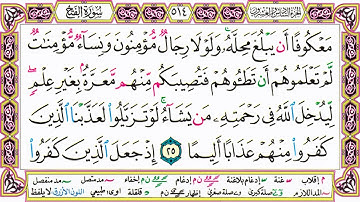 سُورَةُ الفَتْحِ ٥١٤ الجزء السادس والعشرون
مَعْكُوفًا أَن يَبْلُغَ مَحِلَّهُۥ ۚ وَلَوْلَا رِجَالٌ مُّؤْمِنُونَ وَنِسَآءٌ مُّؤْمِنَٰتٌ
لَّمْ تَعْلَمُوهُمْ أَن تَطَـُٔوهُمْ فَتُصِيبَكُم مِّنْهُم مَّعَرَّةٌۢ بِغَيْرِ عِلْمٍ ۖ
لِّيُدْخِلَ ٱللَّهُ فِى رَحْمَتِهِۦ مَن يَشَآءُ ۚ لَوْ تَزَيَّلُوا۟ لَعَذَّبْنَا ٱلَّذِينَ
كَفَرُوا۟ مِنْهُمْ عَذَابًا أَلِيمًا ٢٥ إِذْ جَعَلَ ٱلَّذِينَ كَفَرُوا۟